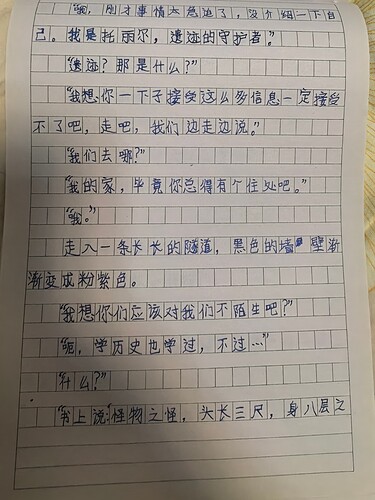 "呃，刚才事情太急迫了，没介绍一下自
己。我是托丽尔，遗迹的守护者。"
"遗迹？那是什么？"
"我想，你一下子接受这么多信息一定接受
不了吧，走吧，我们边走边说。"
"我们去哪？"
"我的家，毕竟你总得有个住处吧。"
"哦。"
走入一条长长的隧道，黑色的墙壁渐
渐变成粉紫色。
"我想，你们应该对我们不陌生吧？"
"呃，学历史也学过，不过…"
"什么？"
"书上说：怪物之怪，头长三尺，身八层之